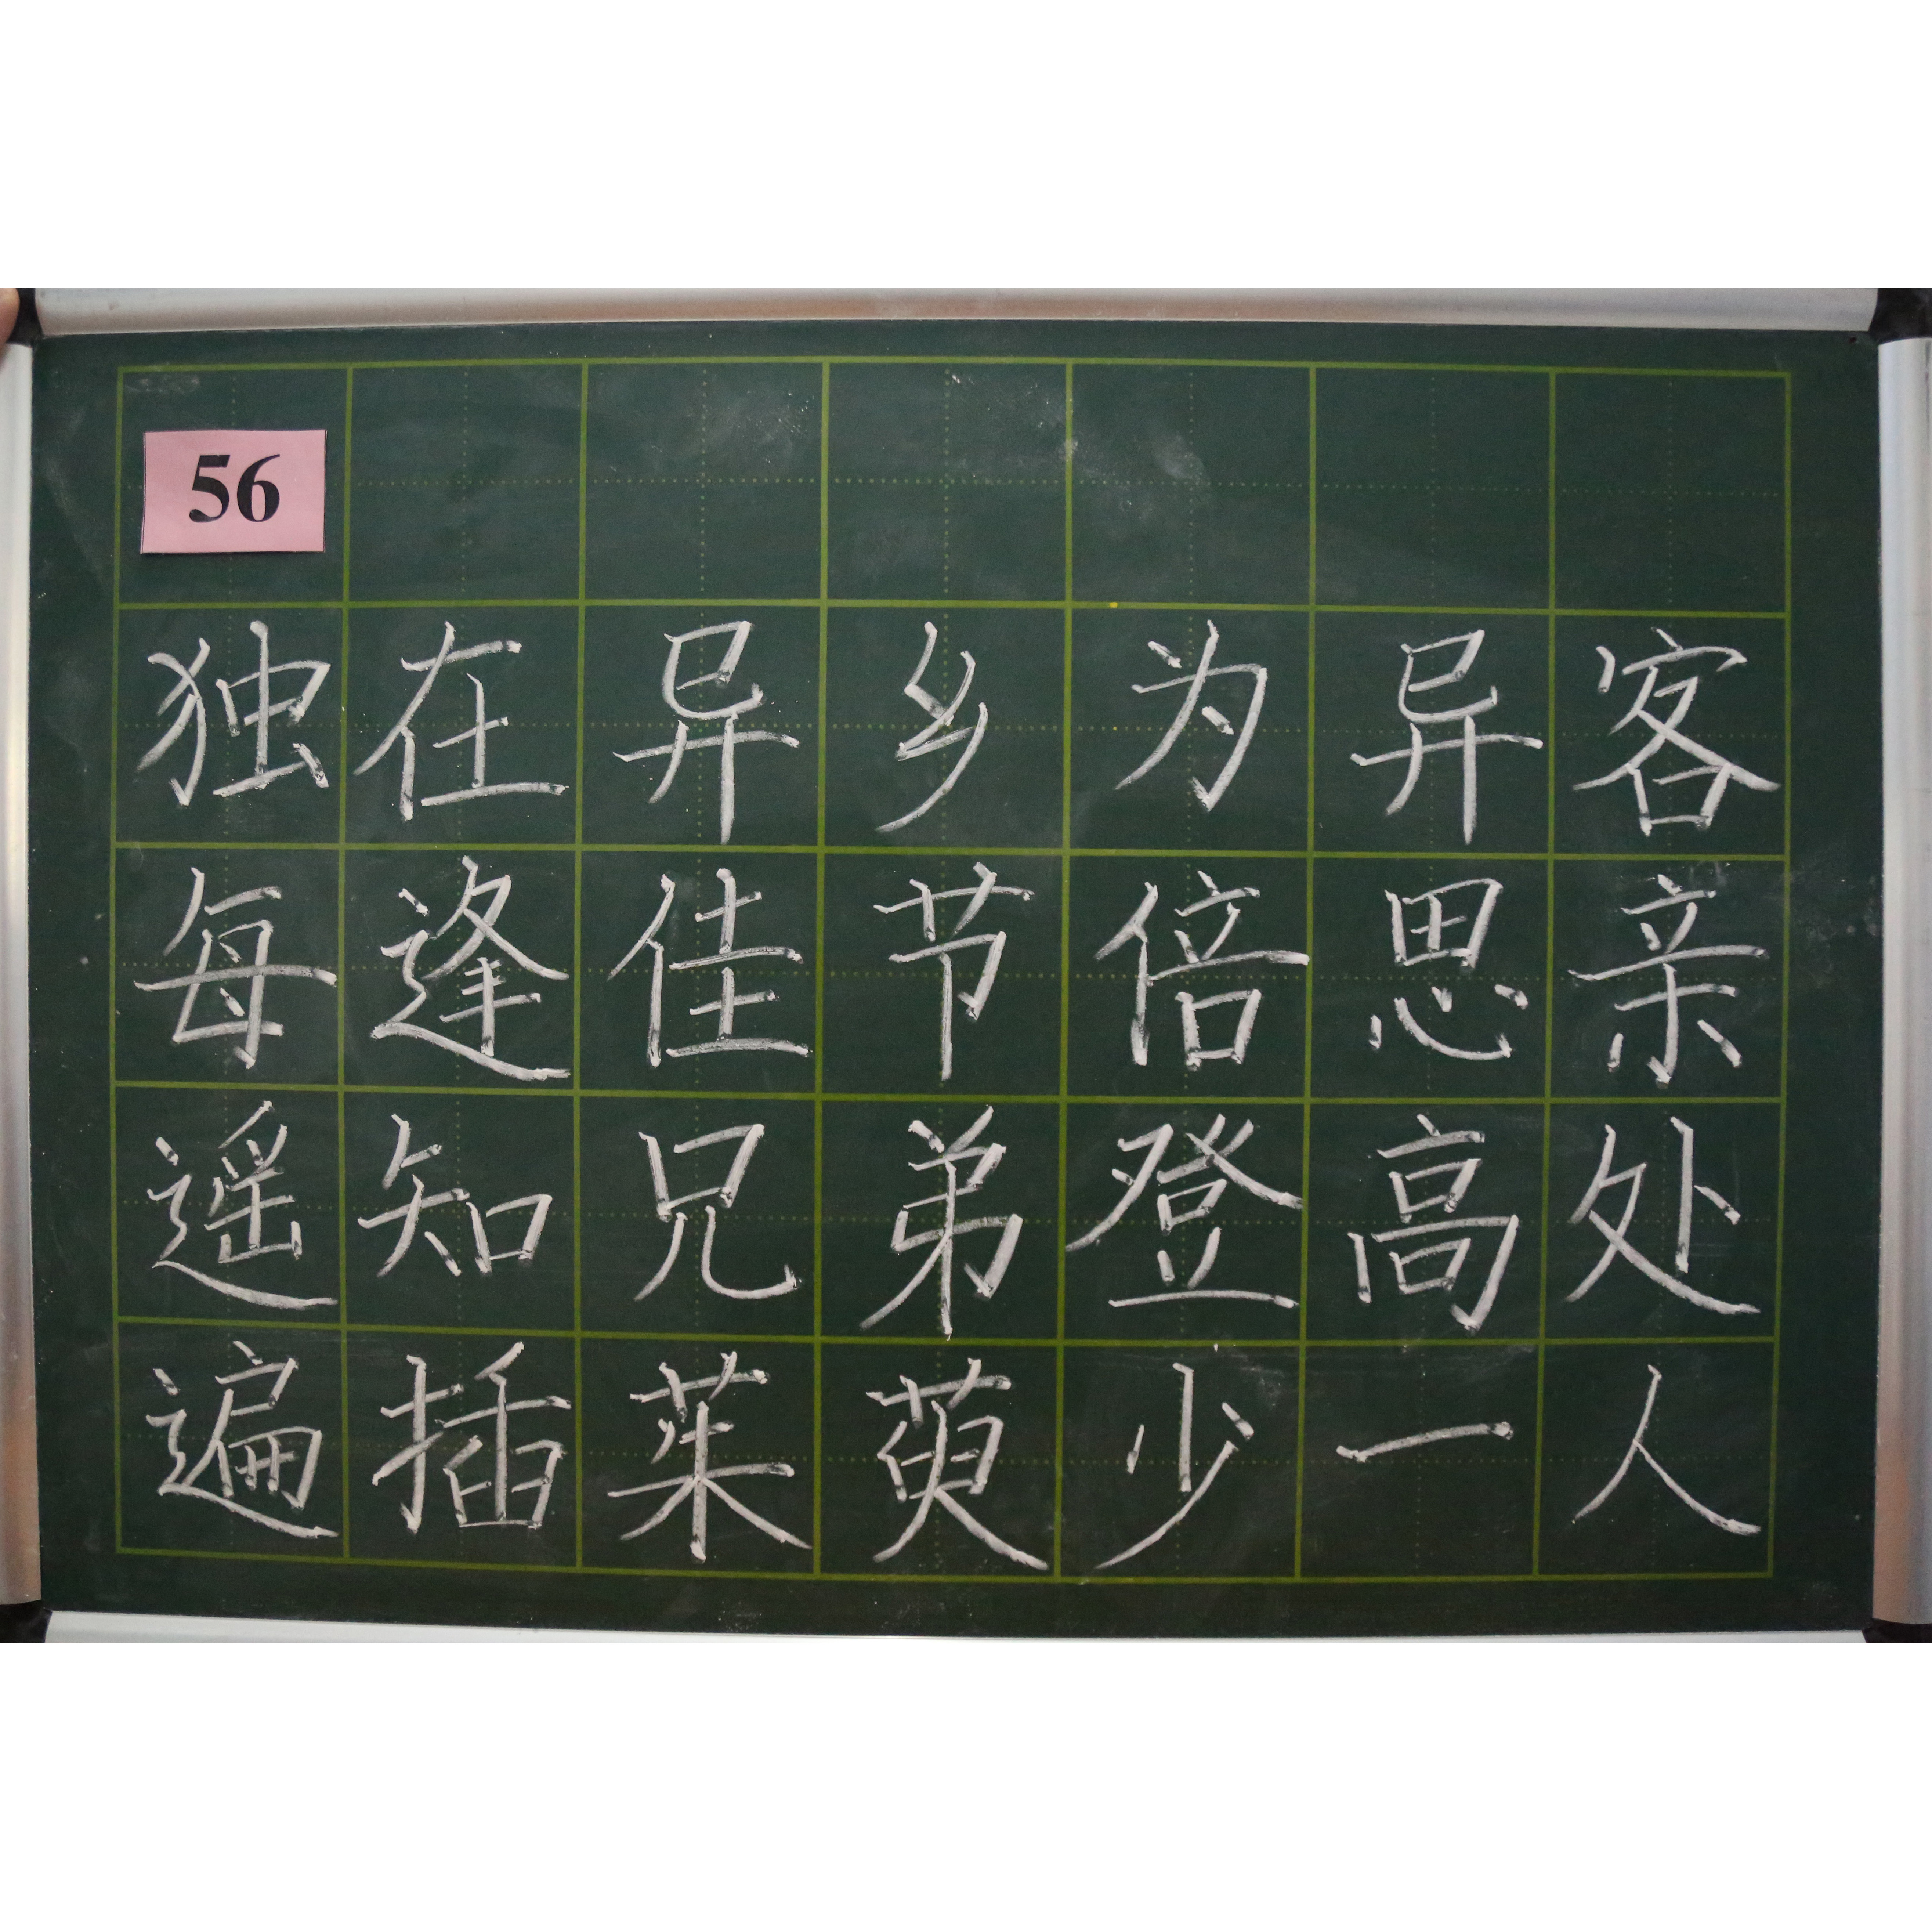 56
独在异乡为异客
每逢佳节倍思亲
遥知兄弟登高处
遍插茱萸少一人